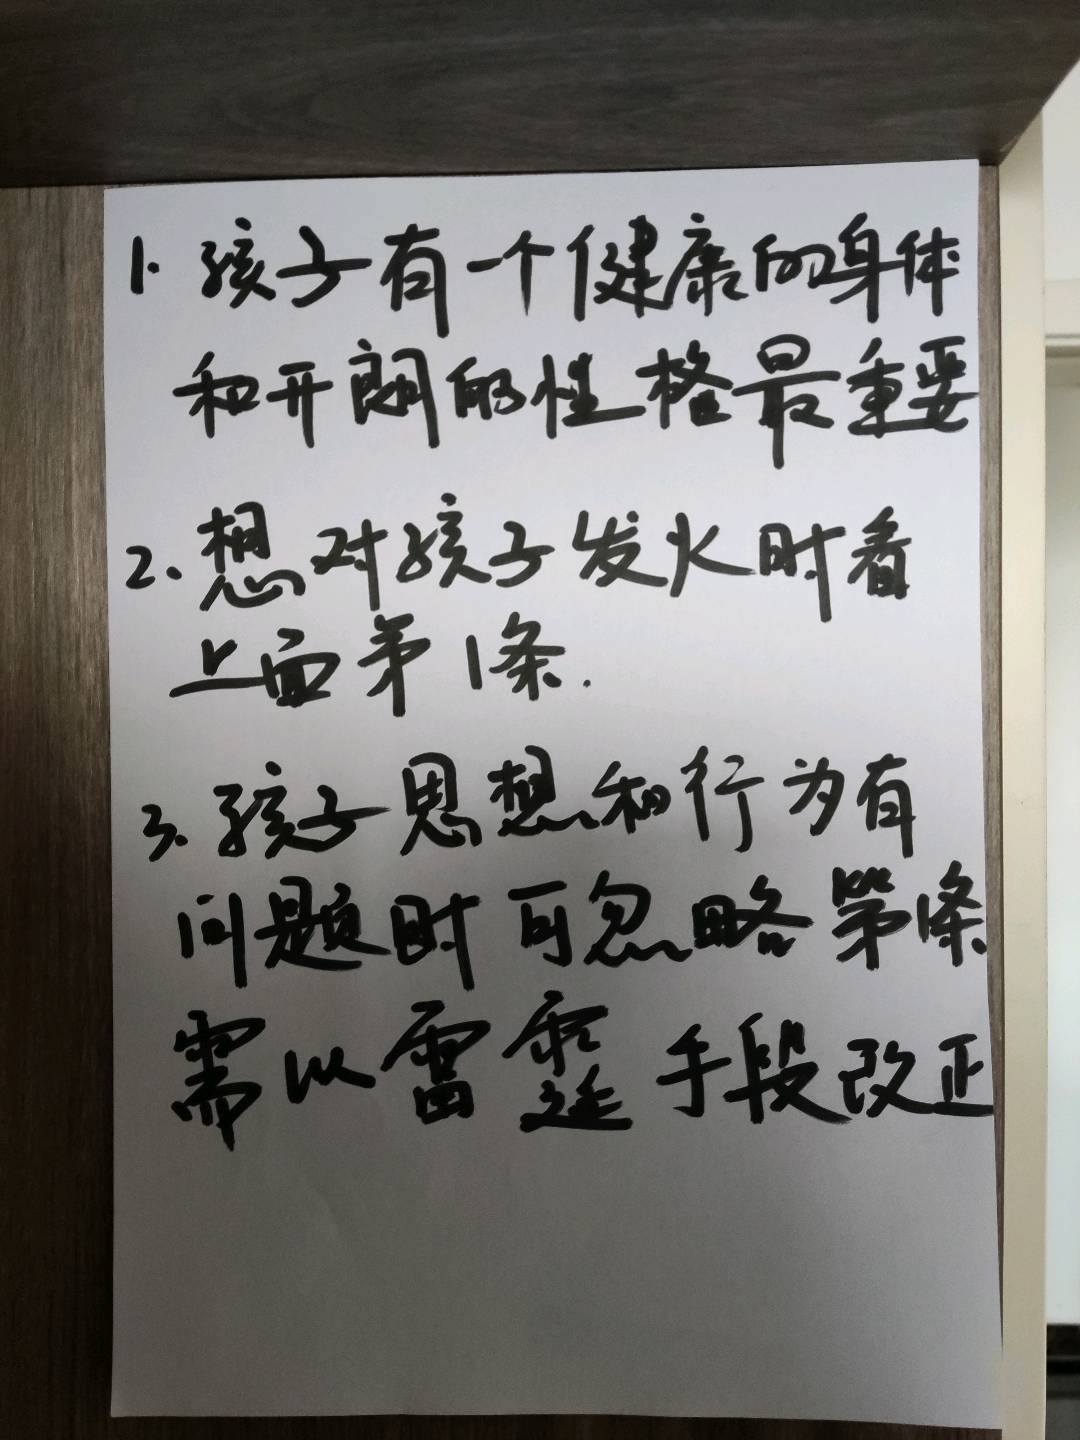 1. 孩子有一个健康的身体
和开朗的性格最重要
2. 想对孩子发火时看
上面第1条.
3. 孩子思想和行为有
问题时可忽略第1条
需以雷霆手段改正